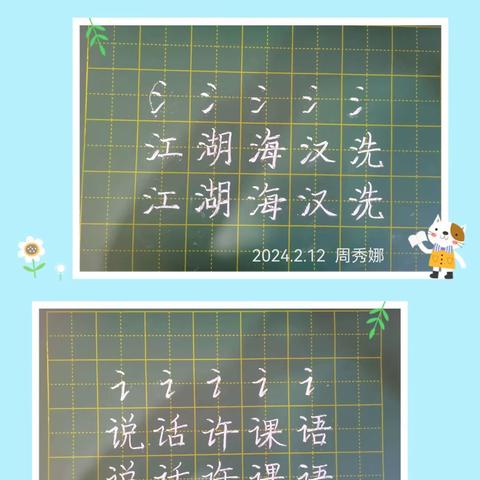 氵 氵 氵 氵 氵
江 湖 海 汉 洗
江 湖 海 汉 洗
2024.2.12 周秀娜
讠 讠 讠 讠 讠
说 话 许 课 语
说 话 许 课 语